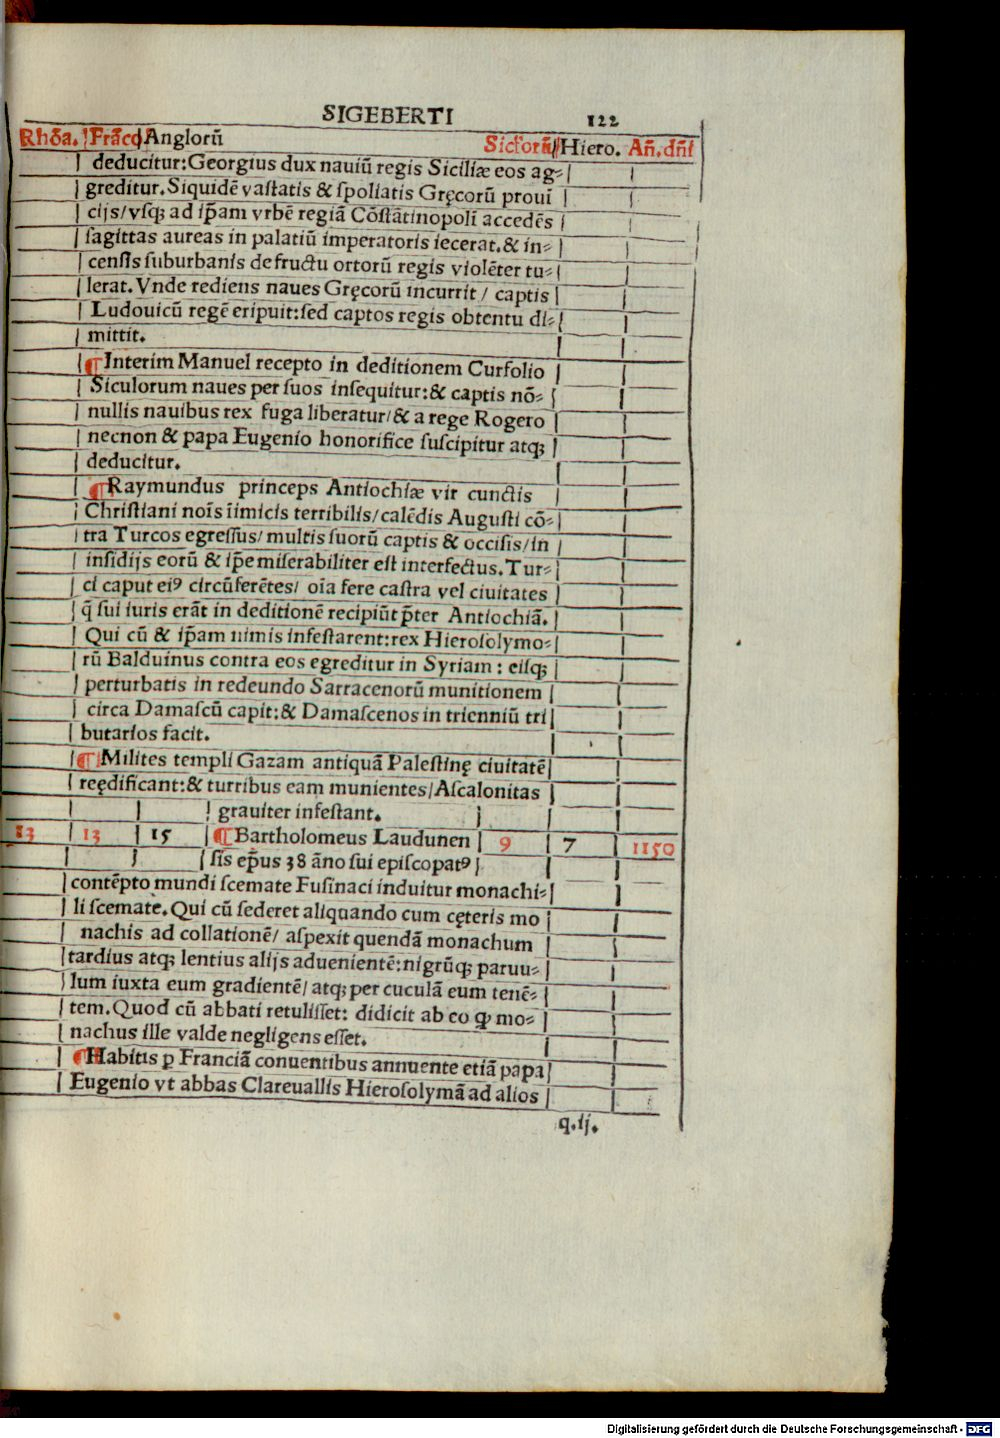 SIGEBERTI 122
Rhõa. Frãcoꝝ Anglorũ Siclorũ Hiero. Añ.dñi
deducitur:Georgius dux nauiũ regis Siciliæ eos ag⸗
greditur.Siquidē vaſtatis & ſpoliatis Gręcorũ proui
cijs/vſqꝫ ad ip̃am vrbē regiã Cõſtãtinopoli accedēs
ſagittas aureas in palatiũ imperatoris iecerat.& in⸗
cenſis ſuburbanis de fructu ortorũ regis violēter tu⸗
lerat.Vnde rediens naues Gręcorũ incurrit/ captis
Ludouicũ regē eripuit:ſed captos regis obtentu di⸗
mittit.
¶Interim Manuel recepto in deditionem Curfolio
Siculorum naues per ſuos inſequitur:& captis nõ⸗
nullis nauibus rex fuga liberatur/& a rege Rogero
necnon & papa Eugenio honorifice ſuſcipitur atqꝫ
deducitur.
¶Raymundus princeps Antiochiæ vir cunctis
Chriſtiani nois̃ iimicis terribilis/calēdis Auguſti cõ⸗
tra Turcos egreſſus/multis ſuorũ captis & occiſis/in
inſidijs eorũ & ip̃e miſerabiliter eſt interfectus.Tur⸗
ci caput eiꝰ circũferētes/ oia fere caſtra vel ciuitates
q̃ ſui iuris erãt in deditionē recipiũt p̃ter Antiochiã.
Qui cũ & ip̃am nimis infeſtarent:rex Hieroſolymo⸗
rũ Balduinus contra eos egreditur in Syriam : eiſqꝫ
perturbatis in redeundo Sarracenorũ munitionem
circa Damaſcũ capit:& Damaſcenos in trienniũ tri
butarios facit.
¶Milites templi Gazam antiquã Paleſtinę ciuitatē
reędificant:& turribus eam munientes/Aſcalonitas
grauiter infeſtant.
13 13 15 ¶Bartholomeus Laudunen 9 7 1150
ſis ep̃us 38 ãno ſui epiſcopatꝰ
contēpto mundi ſcemate Fuſinaci induitur monachi⸗
li ſcemate.Qui cũ ſederet aliquando cum cęteris mo
nachis ad collationē/ aſpexit quendã monachum
tardius atqꝫ lentius alijs aduenientē:nigrũqꝫ paruu⸗
lum iuxta eum gradientē/atqꝫ per cuculã eum tenē⸗
tem.Quod cũ abbati retuliſſet: didicit ab eo ꝙ mo⸗
nachus ille valde negligens eſſet.
¶Habitis ꝑ Franciã conuentibus annuente etiã papa
Eugenio vt abbas Clareuallis Hieroſolymã ad alios
q.ij.
Digitalisierung gefördert durch die Deutsche Forschungsgemeinschaft - DFG